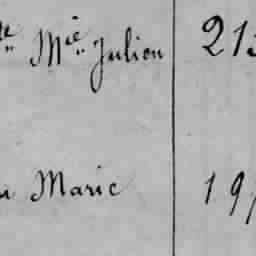 Mie Julien 21
Marie 19